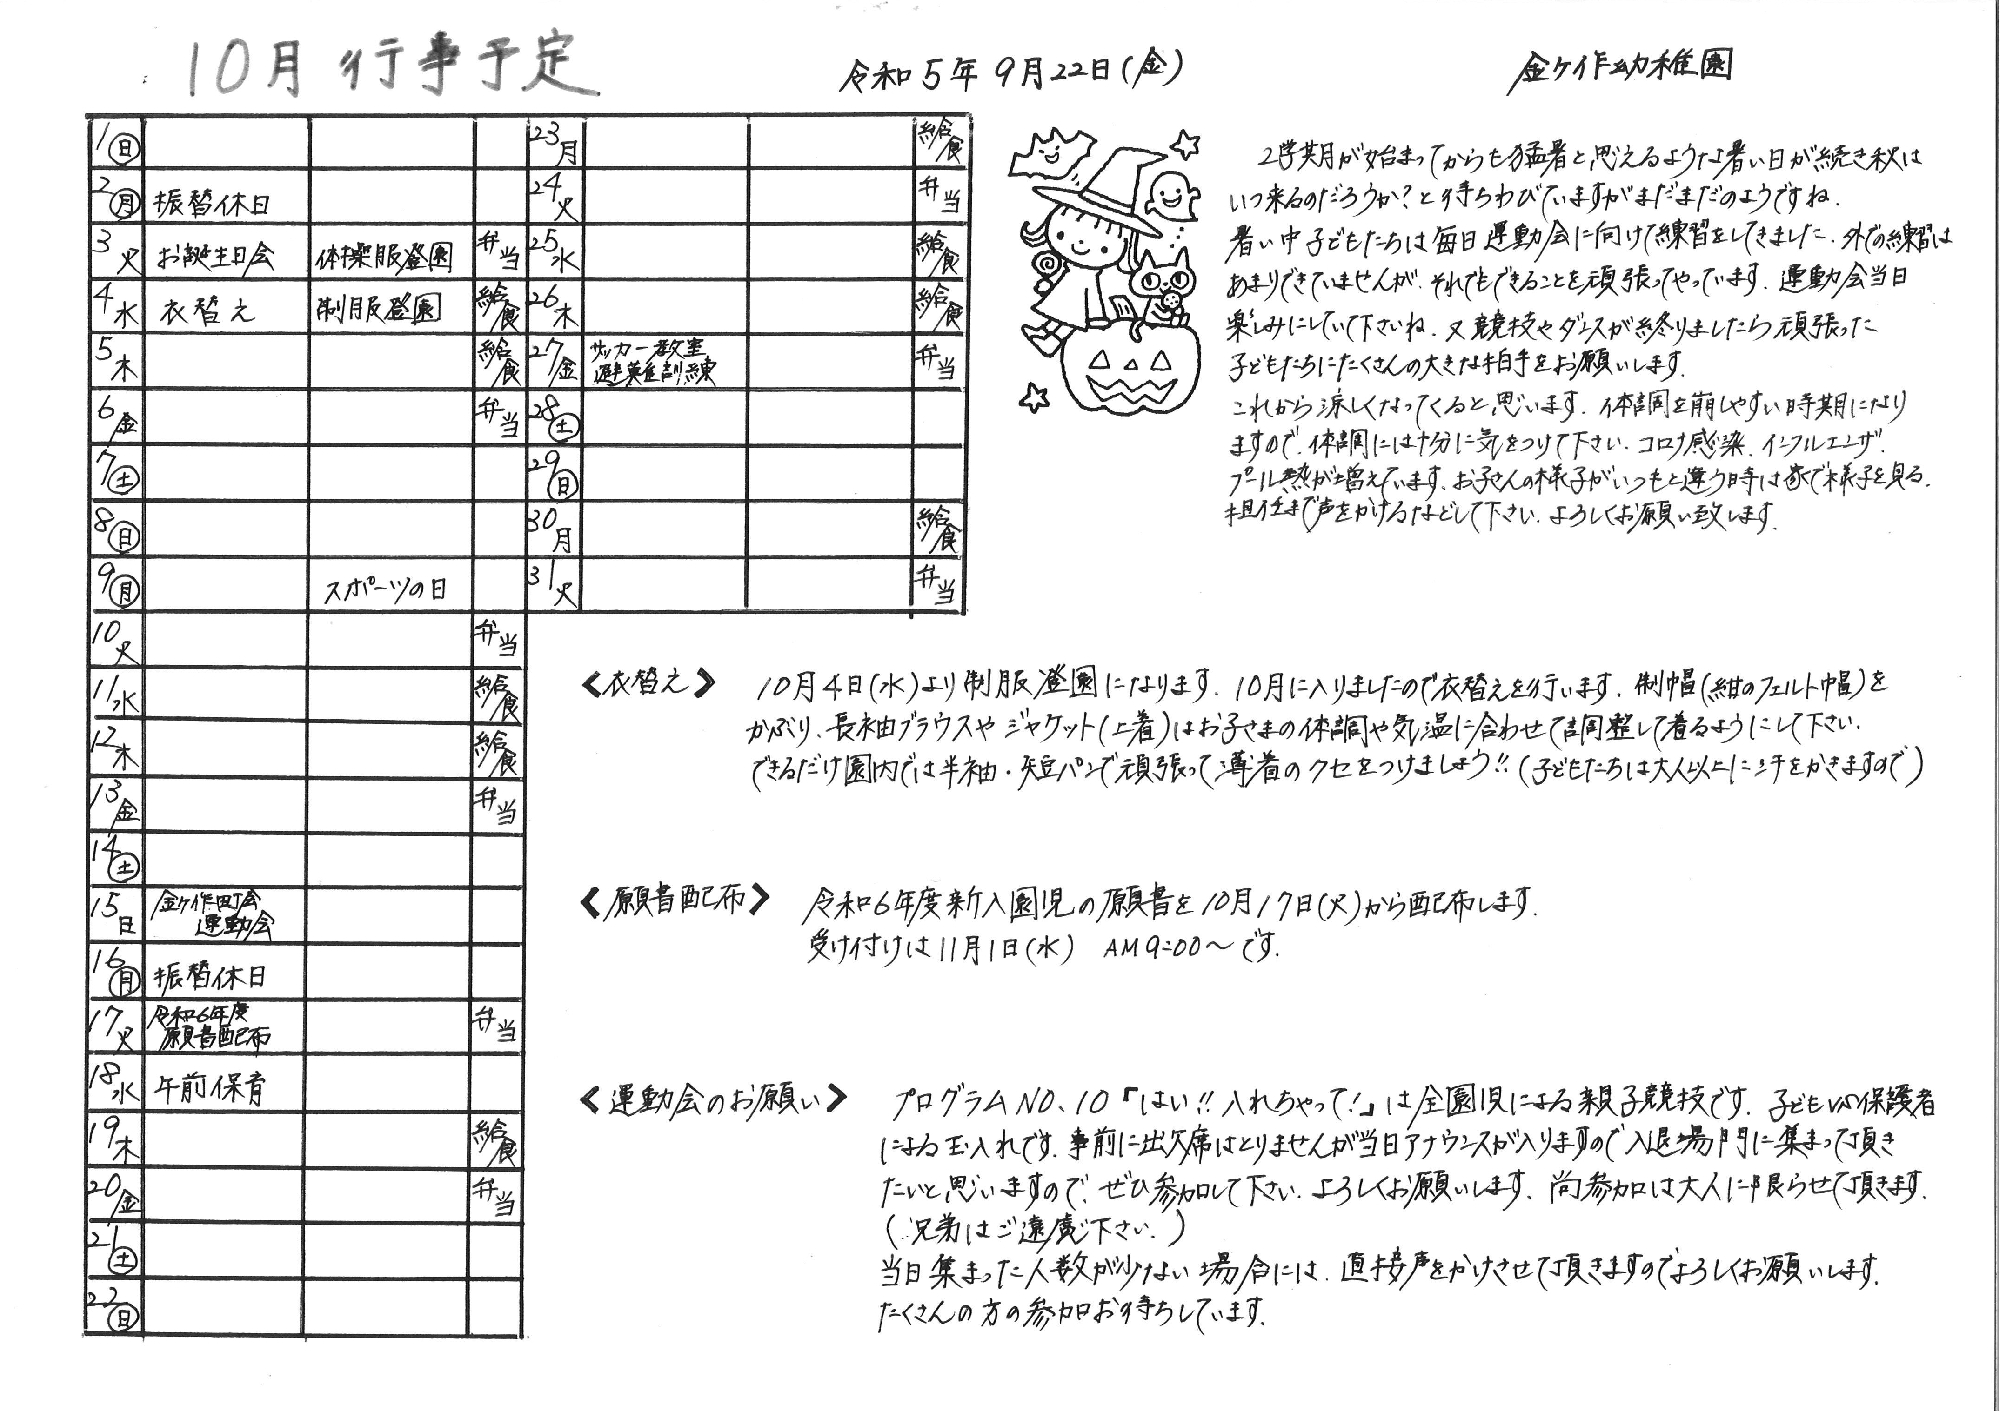 10月 行事予定
令和5年 9月22日(金)
金ケ作幼稚園
1(日)
2(月) 振替休日
3火 お誕生日会 体操服登園 弁当
4水 衣替え 制服登園 給食
5木 給食
6金 弁当
7(土)
8(日)
9(月) スポーツの日
10火 弁当
11水 給食
12木 給食
13金 弁当
14(土)
15日 金ケ作町会
運動会
16(月) 振替休日
17火 令和6年度
願書配布 弁当
18水 午前保育
19木 給食
20金 弁当
21(土)
22(日)
23月 給食
24火 弁当
25水 給食
26木 給食
27金 サッカー教室
避難訓練 弁当
28(土)
29(日)
30月 給食
31火 弁当
2学期が始まってからも猛暑と思えるような暑い日が続き秋は
いつ来るのだろうか?と待ちわびていますがまだまだのようですね.
暑い中子どもたちは毎日運動会に向けて練習をしてきました.外での練習は
あまりできていませんが、それでもできることを頑張ってやっています.運動会当日
楽しみにしていて下さいね.又競技やダンスが終りましたら頑張った
子どもたちにたくさんの大きな拍手をお願いします.
これから涼しくなってくると思います.体調を崩しやすい時期になり
ますので、体調には十分に気をつけて下さい.コロナ感染、インフルエンザ、
プール熱が増えています.お子さんの様子がいつもと違う時は家で様子を見る、
担任まで声をかけるなどして下さい.よろしくお願い致します.
<衣替え> 10月4日(水)より制服登園になります.10月に入りましたので衣替えを行います.制帽(紺のフェルト帽)を
かぶり、長袖ブラウスやジャケット(上着)はお子さまの体調や気温に合わせて調整して着るようにして下さい.
できるだけ園内では半袖・短パンで頑張って薄着のクセをつけましょう!!(子どもたちは大人以上に汗をかきますので)
<願書配布> 令和6年度新入園児の願書を10月17日(火)から配布します.
受け付けは11月1日(水) AM9:00〜です.
<運動会のお願い> プログラムNO.10「はい!!入れちゃって!」は全園児による親子競技です.子どもVS保護者
による玉入れです.事前に出欠席はとりませんが当日アナウンスが入りますので入退場門に集まって頂き
たいと思いますので、ぜひ参加して下さい.よろしくお願いします.尚参加は大人に限らせて頂きます.
(兄弟はご遠慮下さい.)
当日集まった人数が少ない場合には、直接声をかけさせて頂きますのでよろしくお願いします.
たくさんの方の参加お待ちしています.